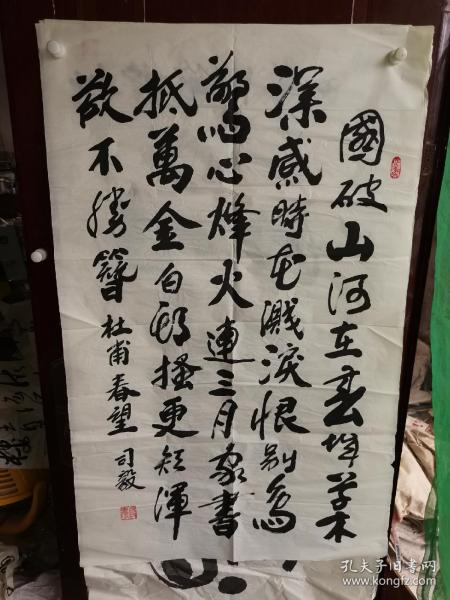 國破山河在春城草木
深感時花濺淚恨別鳥
驚心烽火連三月家書
抵萬金白頭搔更短渾
欲不勝簪
杜甫春望
司毅
孔夫子旧书网
www.kongfz.com